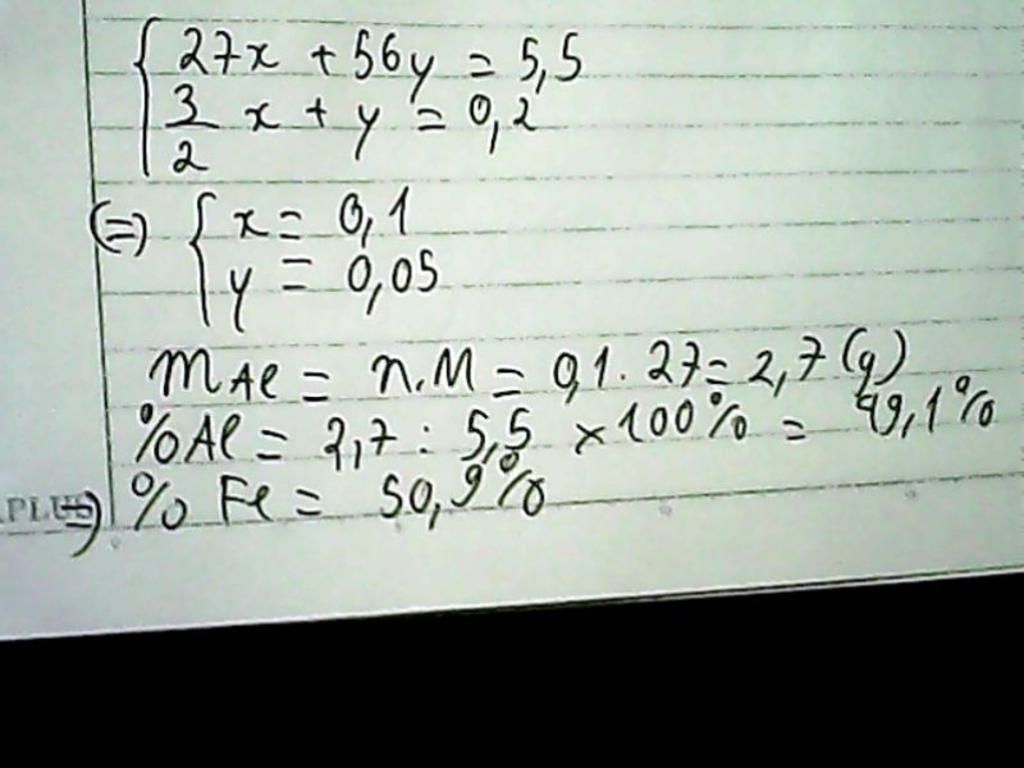 27x + 56y = 5,5
3/2 x + y = 0,2
(=) x = 0,1
y = 0,05
mAl = n.M = 0,1 . 27 = 2,7 (g)
%Al = 2,7 : 5,5 × 100% = 49,1%
PLUS =) % Fe = 50,9%